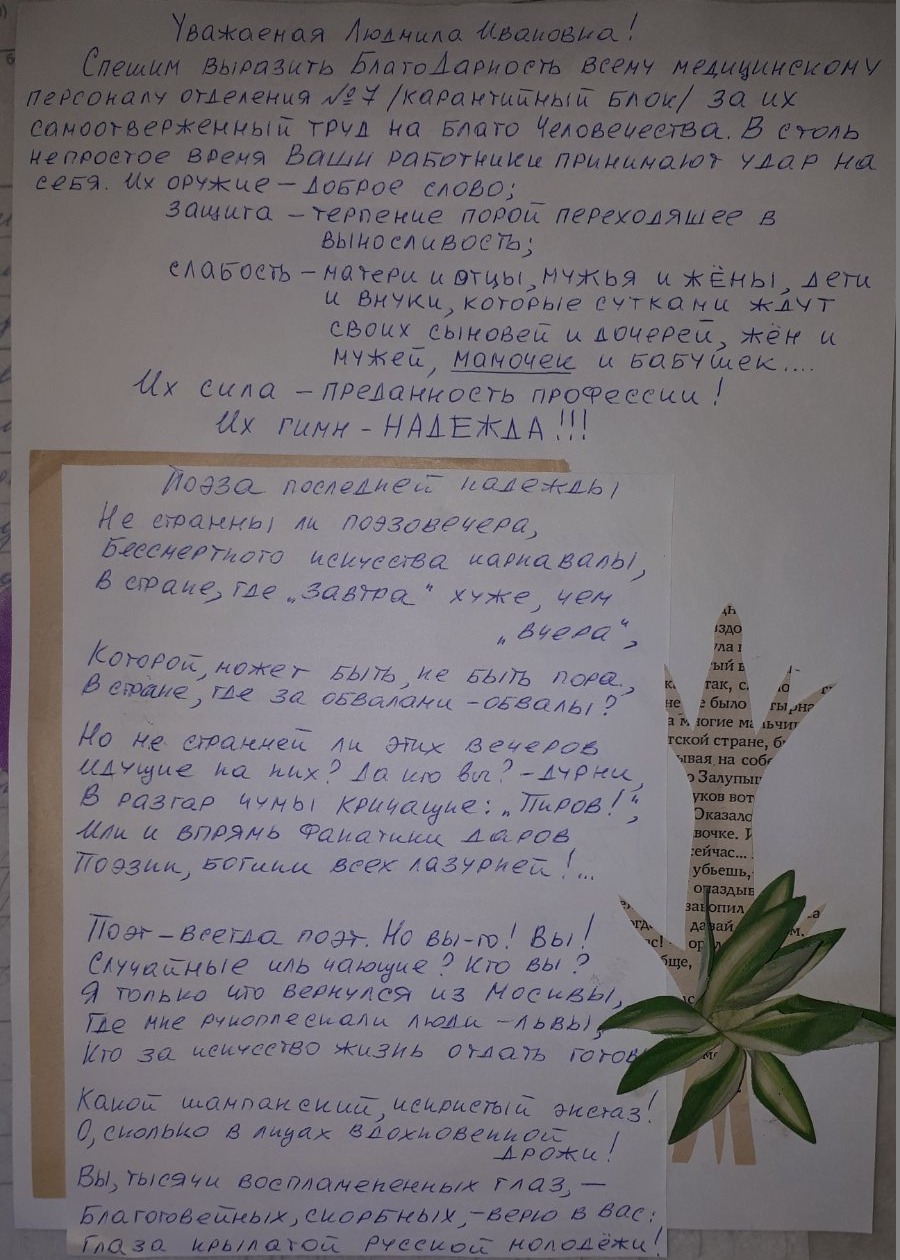 Уважаемая Людмила Ивановна!
Спешим выразить БлагоДарность всему медицинскому
персоналу отделения №7 /карантийный блок/ за их
самоотверженный труд на благо Человечества. В столь
непростое время Ваши работники принимают удар на
себя. Их оружие – доброе слово;
защита – терпение порой переходяшее в
выносливость;
слабость – матери и отцы, мужья и жёны, дети
и внуки, которые сутками ждут
своих сыновей и дочерей, жён и
мужей, мамочек и бабушек....
Их сила – преданность профессии!
Их гимн – НАДЕЖДА!!!
Поэза последней надежды
Не странны ли поэзовечера,
Бессмертного искусства карнавалы,
В стране, где „завтра“ хуже, чем
„вчера“,
Которой, может быть, не быть пора,
В стране, где за обвалами – обвалы?
Но не странней ли этих вечеров
Идущие на них? Да кто вы? – дурни,
В разгар чумы кричащие: „Пиров!“,
Или и впрямь фанатики даров
Поэзии, богини всех лазурней!...
Поэт – всегда поэт. Но вы-то! Вы!
Случайные иль чающие? Кто вы?
Я только что вернулся из Москвы,
Где мне рукоплескали люди – львы,
Кто за искусство жизнь отдать готов
Какой шампанский, искристый экстаз!
О, сколько в лицах вдохновенной
дрожи!
Вы, тысячи воспламененных глаз, –
Благоговейных, скорбных, – верю в вас:
Глаза крылатой русской молодёжи!
было
многие
тской стране,
ывая на
Залупы
уков вот
Оказало
вочке.
сейчас...
убьешь,
опаздыв
закопил
давай